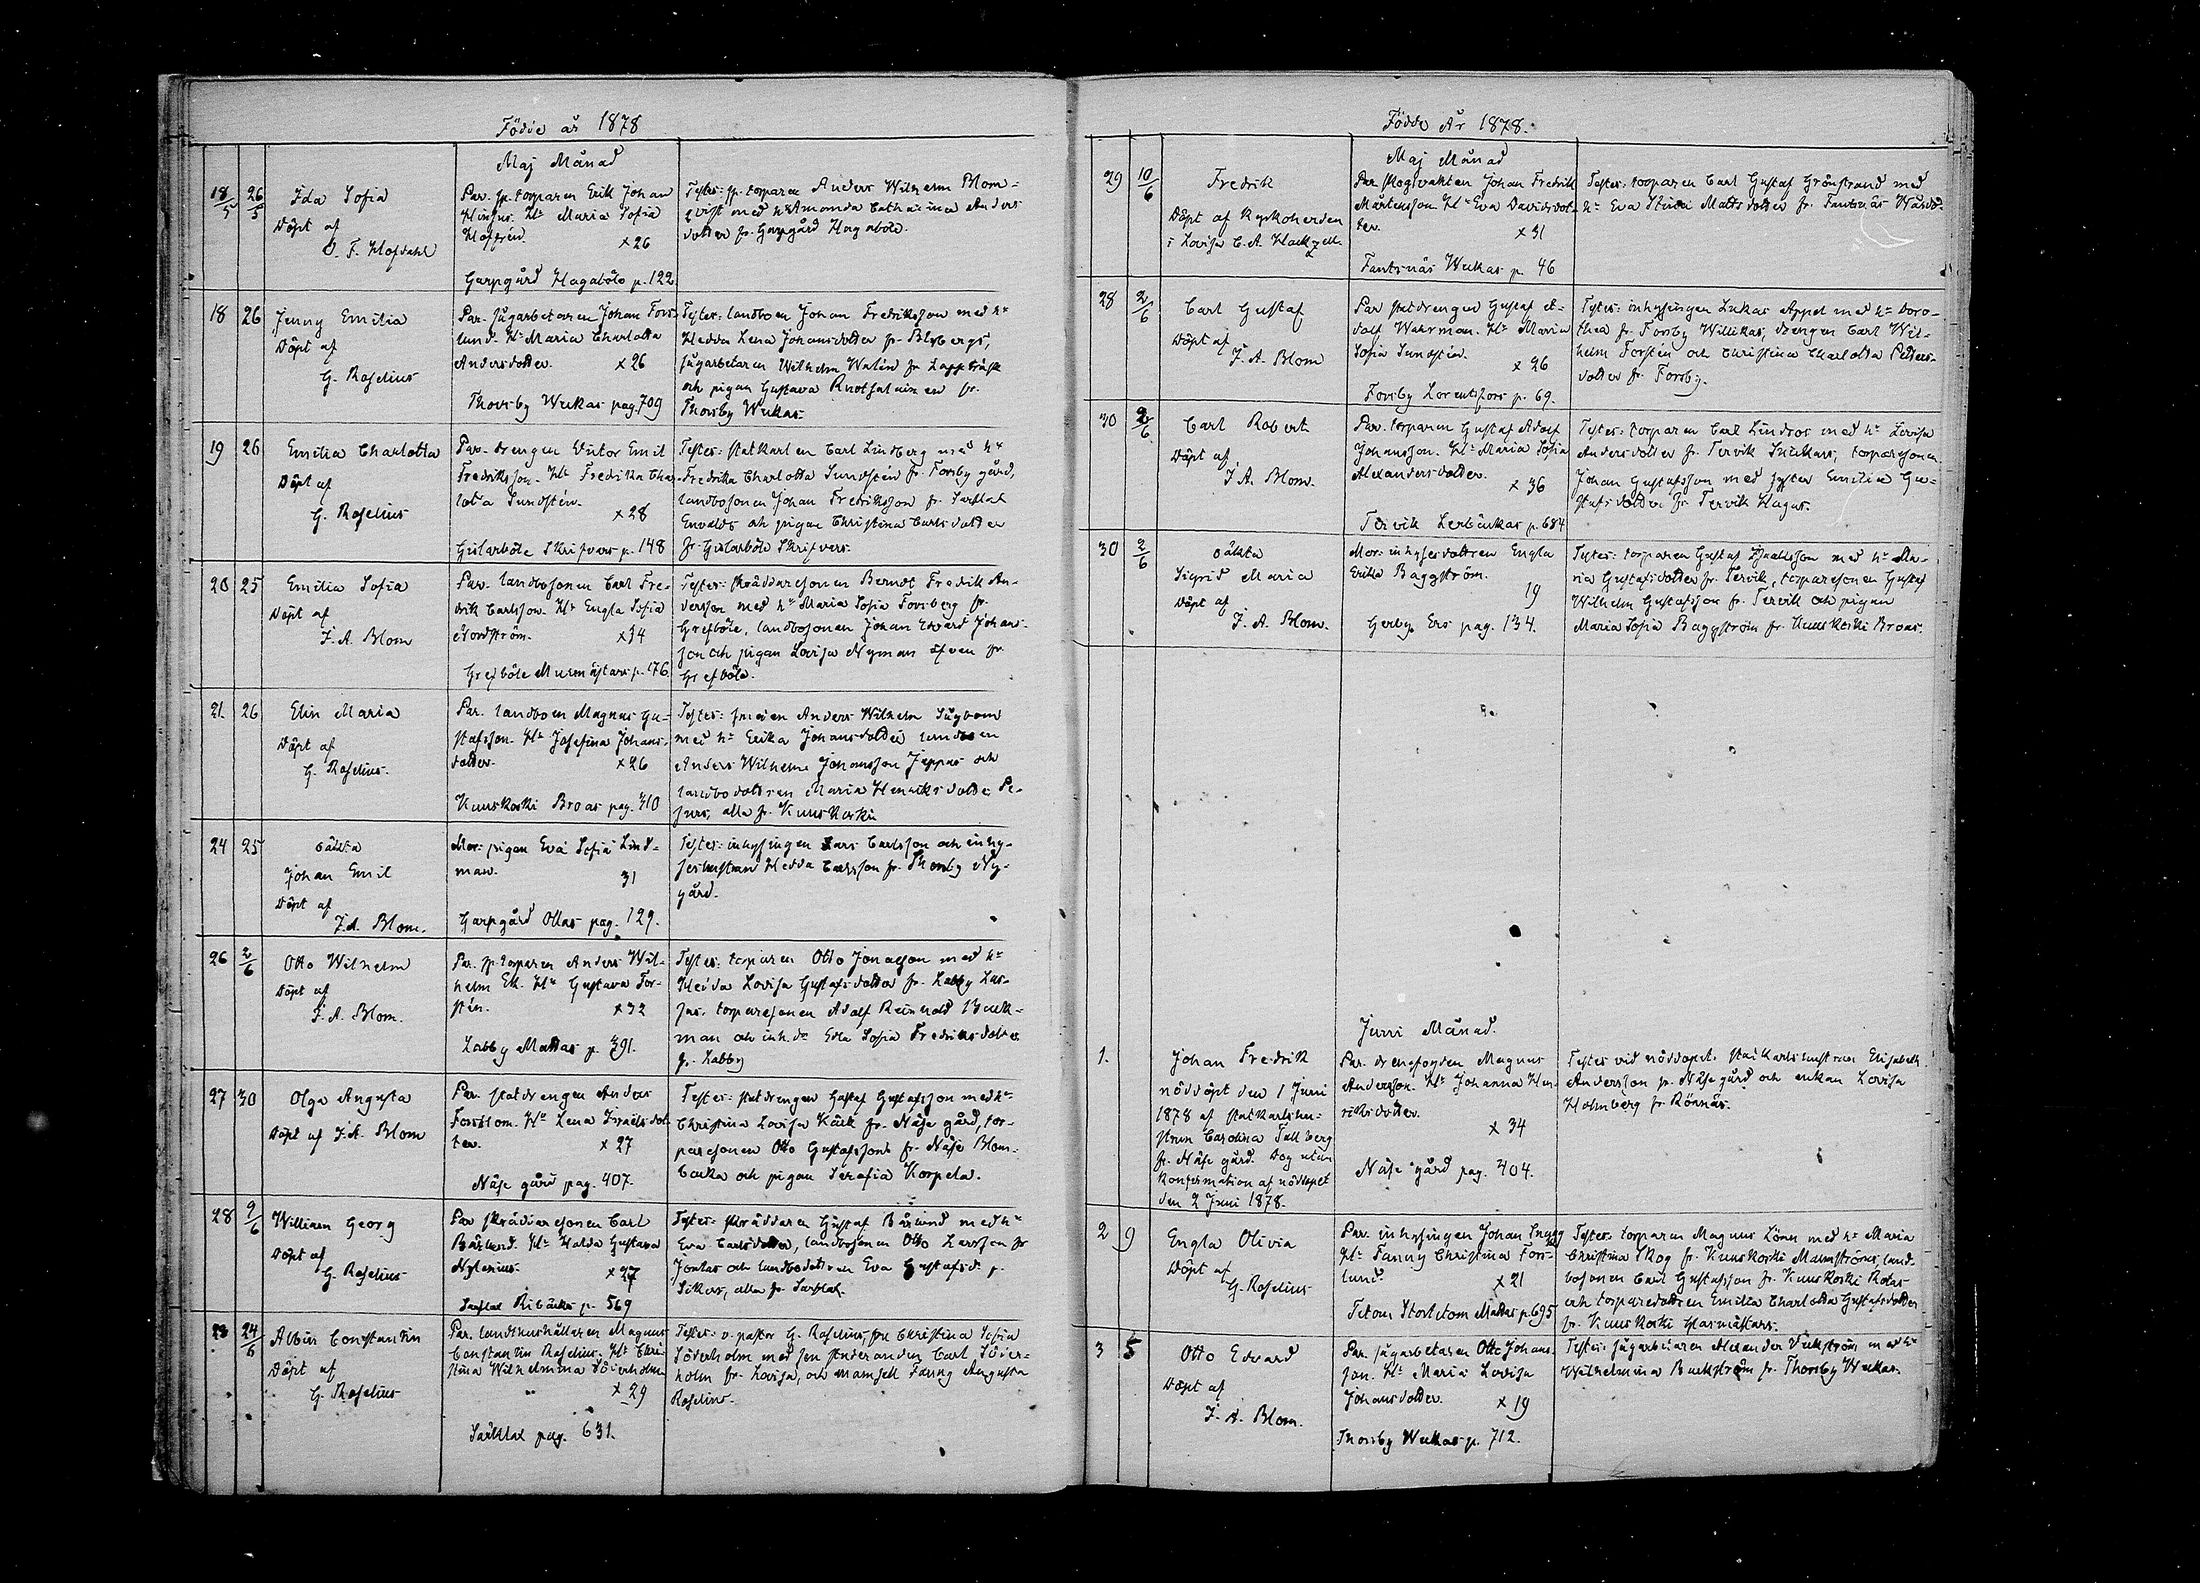 Födde år 1878
Maj Månad
18/5 26/5
Ida Sofia
Döpt af
J. F. Hofdahl
Par. sp. torparen Erik Johan
Hr Maria Sofia
Haffrén.
x 26
Garpgård Hagabölo p. 122
Testes: sp. torparen Anders Wilhelm Blom-
qvist med hr Amanda Catharina Anders
dotter fr. Garpgård Hagaböle.
18 26
Jenny Emilia
Döpt af
G. Roselius
Par. sågarbetaren Johan Fors-
lund. Hr Maria Charlotta
Andersdotter. x 26
Thorsby Wekas pag. 709
Testes: landboen Johan Fredriksson med hr
Hedda Lena Johansdotter fr.
sågarbetaren Wilhelm Walén fr. Lappträsk
och pigan Gustava fr.
Thorsby Wekas.
19 26
Emilia Charlotta
Döpt af
G. Roselius
Par. drengen Victor Emil
Fredriksson. Hr Fredrika Char-
lotta Sundstén.
x 28
Gislarböle Skrifvars p. 148
Testes: statkarlen Carl Lindberg med hr
Fredrika Charlotta Sundstén fr. Forsby gård,
landbosonen Johan Fredriksson fr. Sarflax
Envalds och pigan Christina Carlsdotter
fr. Gislarböle Skrifvars.
20 25
Emilia Sofia
Döpt af
J. A. Blom
Par. landbosonen Carl Fre-
drik Carlsson. Hr Engla Sofia
Nordström. x 34
Grefböle Murmästars p. 176
Testes: skräddaresonen Berndt Fredrik An-
dersson med hr Maria Sofia Forsberg fr.
Grefböle, landbosonen Johan Edvard Johans-
son och pigan Lovisa Nyman äfven fr.
Grefböle.
21 26
Elin Maria
Döpt af
G. Roselius.
Par. landboen Magnus Gu-
stafsson. Hr Josefina Johans-
dotter. x 26
Kuuskoski Broas pag. 310
Testes: smeden Anders Wilhelm Sågbom
med hr Erika Johansdotter
Anders Wilhelm Johansson Jeppas och
landbodottren Maria Henriksdotter Pe-
jars, alla fr. Kuuskoski
24 25
oäkta
Johan Emil
Döpt af
J. A. Blom.
Mor: pigan Eva Sofia Lind-
man. 31
Garpgård Ollas pag. 129.
Testes: inhysingen Lars Carlsson och inhy-
seshustrun Hedda Carlsson fr. Thorsby Ny-
gård.
26 2/6
Otto Wilhelm
Döpt af
J. A. Blom.
Par. sp. torparen Anders Wil-
helm Ek. Hr Gustava For-
stén. x 32
Labby Mattas p. 391.
Testes: torparen Otto Jonasson med hr
Hedda Lovisa Gustafsdotter fr. Labby Las-
sas. torparesonen Adolf Reinhold Back-
man och inh. dr Edla Sofia Fredriksdotter
fr. Labby
27 30
Olga Augusta
Döpt af J. A. Blom
Par. statdrengen Anders
Forsblom. Hr Lena Israelsdot-
ter. x 27
Näse gård pag. 407.
Testes: statdrengen Gustaf Gustafsson med hr
Christina Lovisa Käck fr. Näse gård, tor-
paresonen Otto Gustafsson fr. Näse Blom-
backa och pigan Serafia Korpela.
28 9/6
William Georg
Döpt af
G. Roselius
Par skräddaresonen Carl
Bärlund. Hr Hulda Gustava
Nylenius. x 27
Sarflax Ribacks p. 569
Testes: skräddaren Gustaf Bärlund med hr
Eva Carlsdotter, landbosonen Otto Larsson fr
Jontas och landbodottren Eva Gustafsd. fr.
Sikars, alla fr. Sarflax.
24/6
Albin Constantin
Döpt af
G. Roselius
Par. landthushållaren Magnus
Constantin Roselius. Hr Chri-
stina Wilhelmina Söderholm
x 29
Sarflax pag. 631.
Testes: v. pastor G. Roselius, fru Christina Sofia
Söderholm med son studeranden Carl Söder-
holm fr. Lovisa, och mamsell Fanny Augusta
Roselius.
Födde År 1878.
Maj Månad
29 10/6
Fredrik
Döpt af Kyrkoherden
i Lovisa C. A.
Par. Skogsvakten Johan Fredrik
Mårtensson Hr Eva Davidsdot-
ter. x 31
Fantsnäs Wekas p. 46
Testes: torparen Carl Gustaf Grönstrand med
hr Eva Stina Mattsdotter fr. Fantsnäs
28 2/6
Carl Gustaf
Döpt af
J. A. Blom
Par statdrengen Gustaf A-
dolf Wahrman. Hr Maria
Sofia Sundstén.
x 26
Forsby Lorentzfors p. 69.
Testes: inhysingen Lukas Appel med hr Doro-
thea fr. Forsby Willikas, drengen Carl Wil-
helm Forstén och Christina Charlotta Petters-
dotter fr. Forsby.
30 2/6
Carl Robert
Döpt af
J. A. Blom.
Par. torparen Gustaf Adolf
Johansson. Hr Maria Sofia
Alexandersdotter.
x 36
Tervik Lerbackas p. 684
Testes: torparen Carl Lindros med hr Lovisa
Andersdotter fr. Tervik torparesonen
Johan Gustafsson med syster Emilia Gu-
stafsdotter fr. Tervik Hagas.
30 2/6
oäkta
Sigrid Maria
Döpt af
J. A. Blom.
Mor: inhysesdottren Engla
Erika Baggström.
19
Gerby Ers pag. 134.
Testes: torparen Gustaf med hr Ma-
ria Gustafsdotter fr. Tervik, torparesonen Gustaf
Wilhelm Gustafsson fr. Tervik och pigan
Maria Sofia Baggström fr. Kuuskoski Broas.
Juni Månad.
1.
Johan Fredrik
nöddöpt den 1 Juni
1878 af statkarlshu-
strun Carolina Tallberg
fr. Näse gård. Dog utan
Konfirmation af nöddopet
den 2 Juni 1878.
Par. drengfogden Magnus
Andersson. Hr Johanna Hen-
riksdotter.
x 34
Näse gård pag. 404.
Testes vid nöddopet. statkarlshustrun Elisabeth
Andersson fr. Näse gård och enkan Lovisa
Holmberg fr. Rönnäs.
2 9
Engla Olivia
Döpt af
G. Roselius
Par. inhysingen Johan
Hr Fanny Christina Fors-
lund. x 21
Tetom Storstetom Mattas p. 695
Testes: torparen Magnus Lönn med hr Maria
Christina Skog fr. Kuuskoski Malmströms, land-
bosonen Carl Gustafsson fr. Kuuskoski
och torparedottren Emilia Charlotta Gustafsdotter
fr. Kuuskoski Glasmästars.
3 5
Otto Edvard
Döpt af
J. A. Blom.
Par. sågarbetaren Otto Johans-
son. Hr Maria Lovisa
Johansdotter. x 19
Thorsby Wekas p. 712.
Testes: sågarbetaren Alexander Vickström med hr
Wilhelmina Backström fr. Thorsby Wekas.